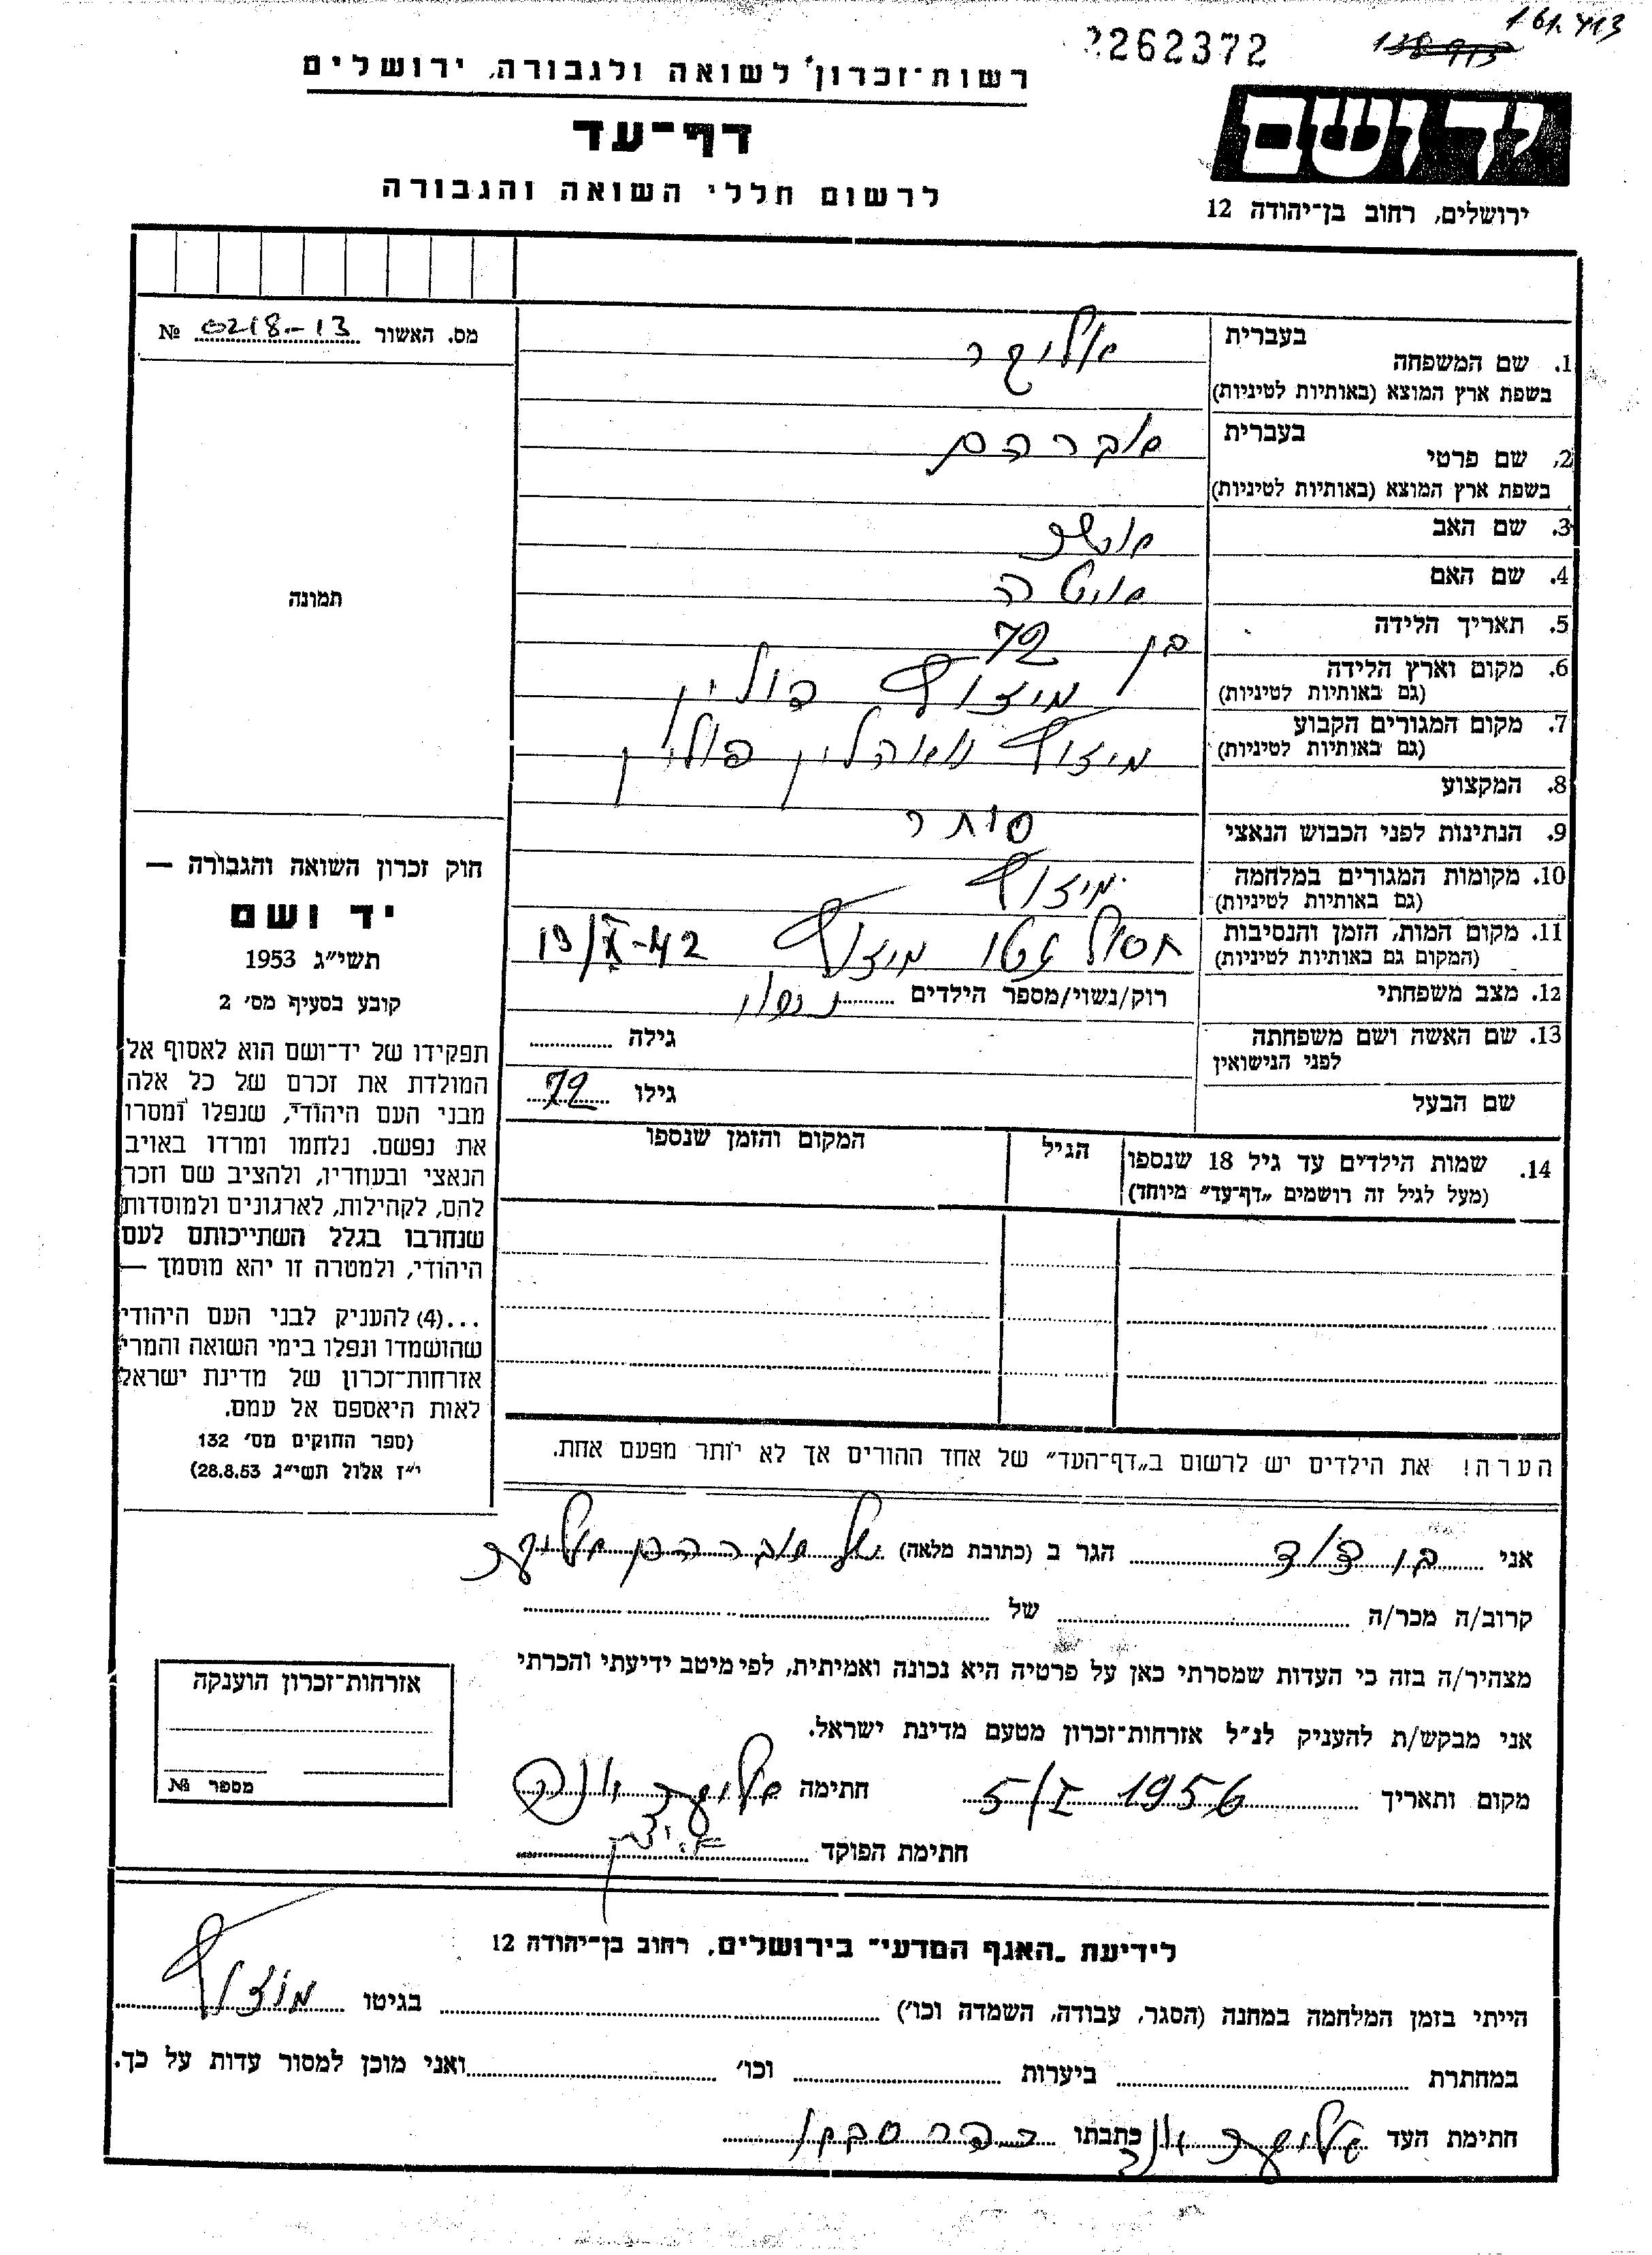 262372
רשות־זכרון לשואה ולגבורה, ירושלים
דף־עד
לרשום חללי השואה והגבורה
יד ושם
ירושלים, רחוב בן־יהודה 12
מס. האשור 0218-13 №
תמונה
חוק זכרון השואה והגבורה —
יד ושם
תשי״ג 1953
קובע בסעיף מס׳ 2
תפקידו של יד־ושם הוא לאסוף אל
המולדת את זכרם של כל אלה
מבני העם היהודי, שנפלו ומסרו
את נפשם. נלחמו ומרדו באויב
הנאצי ובעוזריו, ולהציב שם וזכר
להם, לקהילות, לארגונים ולמוסדות
שנחרבו בגלל השתייכותם לעם
היהודי, ולמטרה זו יהא מוסמך —
...(4) להעניק לבני העם היהודי
שהושמדו ונפלו בימי השואה והמרי
אזרחות־זכרון של מדינת ישראל
לאות היאספם אל עמם.
(ספר החוקים מס׳ 132
י״ז אלול תשי״ג 28.8.53)
בעברית
1. שם המשפחה
בשפת ארץ המוצא (באותיות לטיניות)
בעברית
2. שם פרטי אברהם
בשפת ארץ המוצא (באותיות לטיניות)
3. שם האב
4. שם האם
5. תאריך הלידה בן 72
6. מקום וארץ הלידה מיזוץ פולין
(גם באותיות לטיניות)
7. מקום המגורים הקבוע מיזוץ פולין
(גם באותיות לטיניות)
8. המקצוע סוחר
9. הנתינות לפני הכבוש הנאצי
10. מקומות המגורים במלחמה מיזוץ
(גם באותיות לטיניות)
11. מקום המות, הזמן והנסיבות חסול גטו מיזוץ 13/X-42
(המקום גם באותיות לטיניות)
12. מצב משפחתי רוק/נשוי/מספר הילדים נשוי
13. שם האשה ושם משפחתה גילה
לפני הנישואין
שם הבעל גילו 72
14. שמות הילדים עד גיל 18 שנספו הגיל המקום והזמן שנספו
(מעל לגיל זה רושמים „דף־עד״ מיוחד)
הערה! את הילדים יש לרשום ב„דף־העד״ של אחד ההורים אך לא יותר מפעם אחת.
אני בן דוד הגר ב (כתובת מלאה) של אברהם
קרוב/ה מכר/ה של
מצהיר/ה בזה כי העדות שמסרתי כאן על פרטיה היא נכונה ואמיתית, לפי מיטב ידיעתי והכרתי
אני מבקש/ת להעניק לנ״ל אזרחות־זכרון מטעם מדינת ישראל.
מקום ותאריך 5/I 1956 חתימה
חתימת הפוקד
אזרחות־זכרון הוענקה
מספר №
לידיעת „האגף המדעי״ בירושלים, רחוב בן־יהודה 12
הייתי בזמן המלחמה במחנה (הסגר, עבודה, השמדה וכו׳) בגיטו מיזוץ
במחתרת ביערות וכו׳ ואני מוכן למסור עדות על כך.
חתימת העד כתבתו